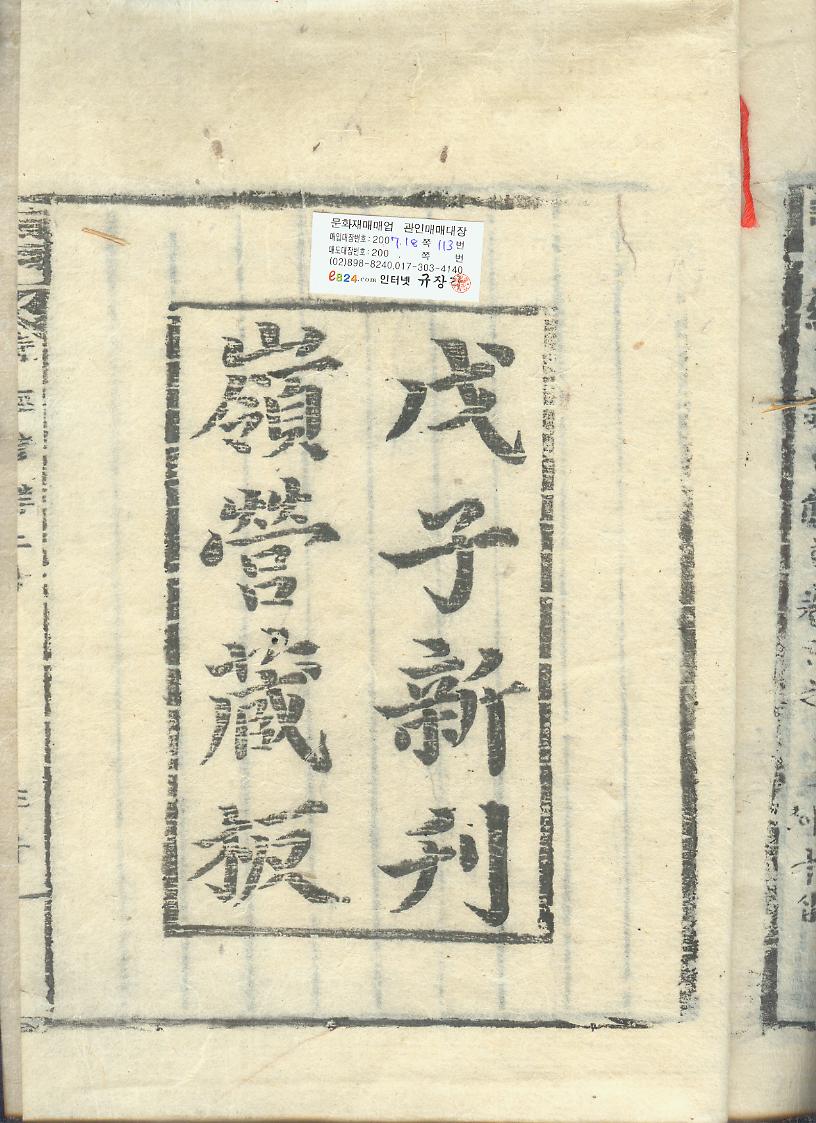 문화재매매업 관인매매대장
매입대장번호 : 2007.18쪽 113번
매도대장번호 : 200 . 쪽 번
(02)898-8240,017-303-4140
e824.com 인터넷 규장각
戊子新刊
嶺營藏板